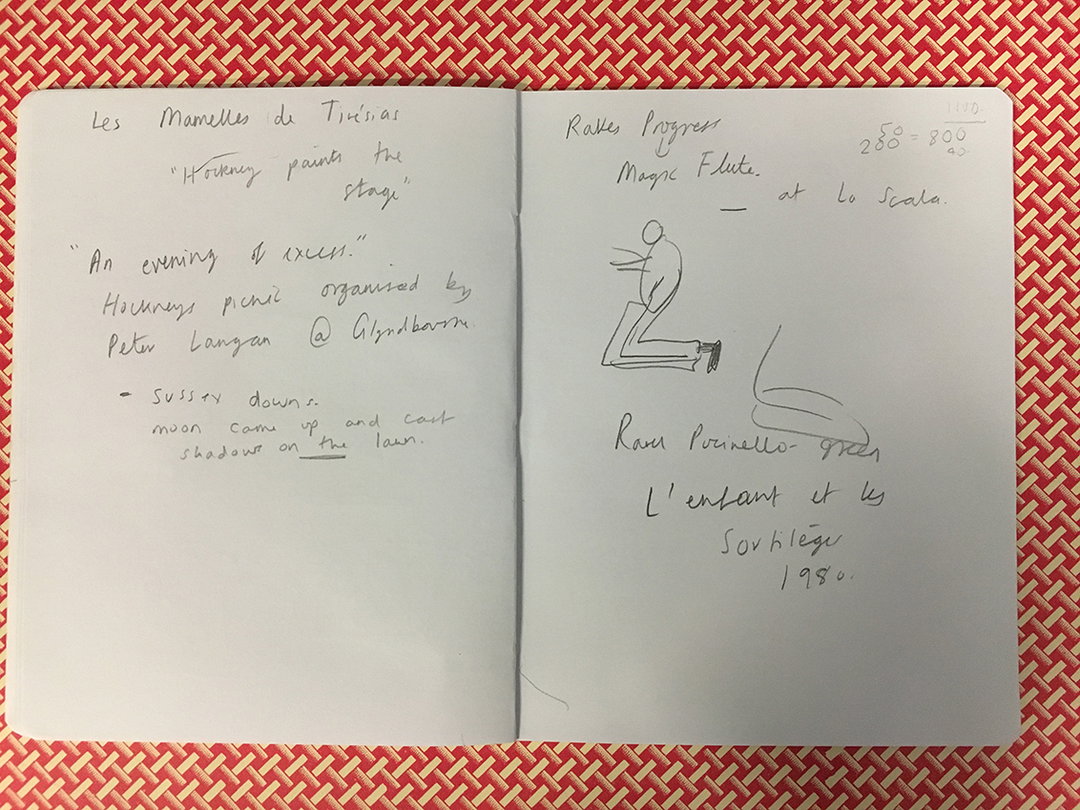 Les Mamelles de Tirésias
"Hockney paints the
stage"
"An evening of excess."
Hockneys picnic organised by
Peter Langan @ Glyndbourne.
- Sussex downs.
moon came up and cast
shadows on the lawn.
Rakes Progress
Magic Flute.
— at La Scala.
50
200 = 800
Ravel - green
L'enfant et les
Sortilège
1980.